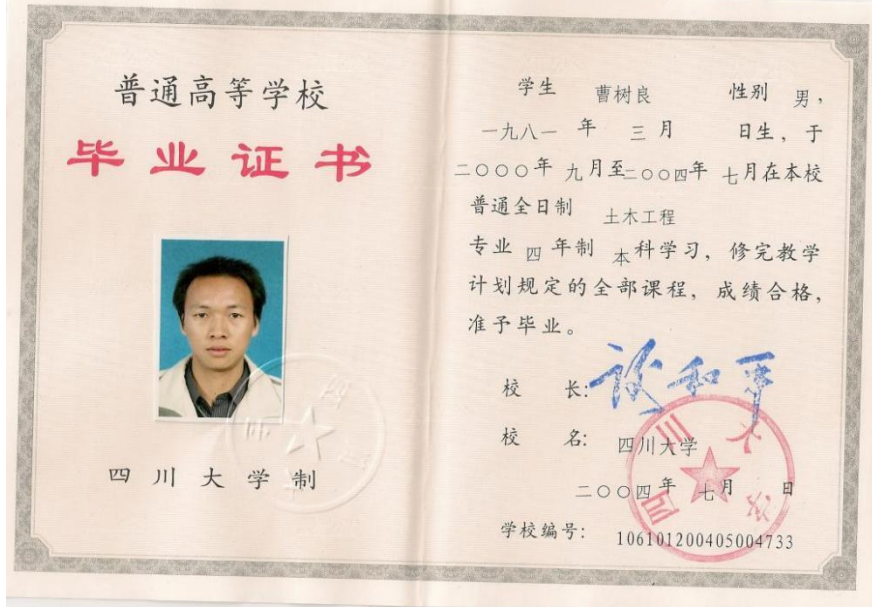 普通高等学校
毕业证书
四川大学制
学生 曹树良 性别 男,
一九八一 年 三 月 日生, 于
二〇〇〇年 九月至二〇〇四年 七月在本校
普通全日制 土木工程
专业 四 年制 本科学习, 修完教学
计划规定的全部课程, 成绩合格,
准予毕业。
校 长: 谢和平
校 名: 四川大学
二〇〇四年 七月 日
学校编号: 106101200405004733
四川大学